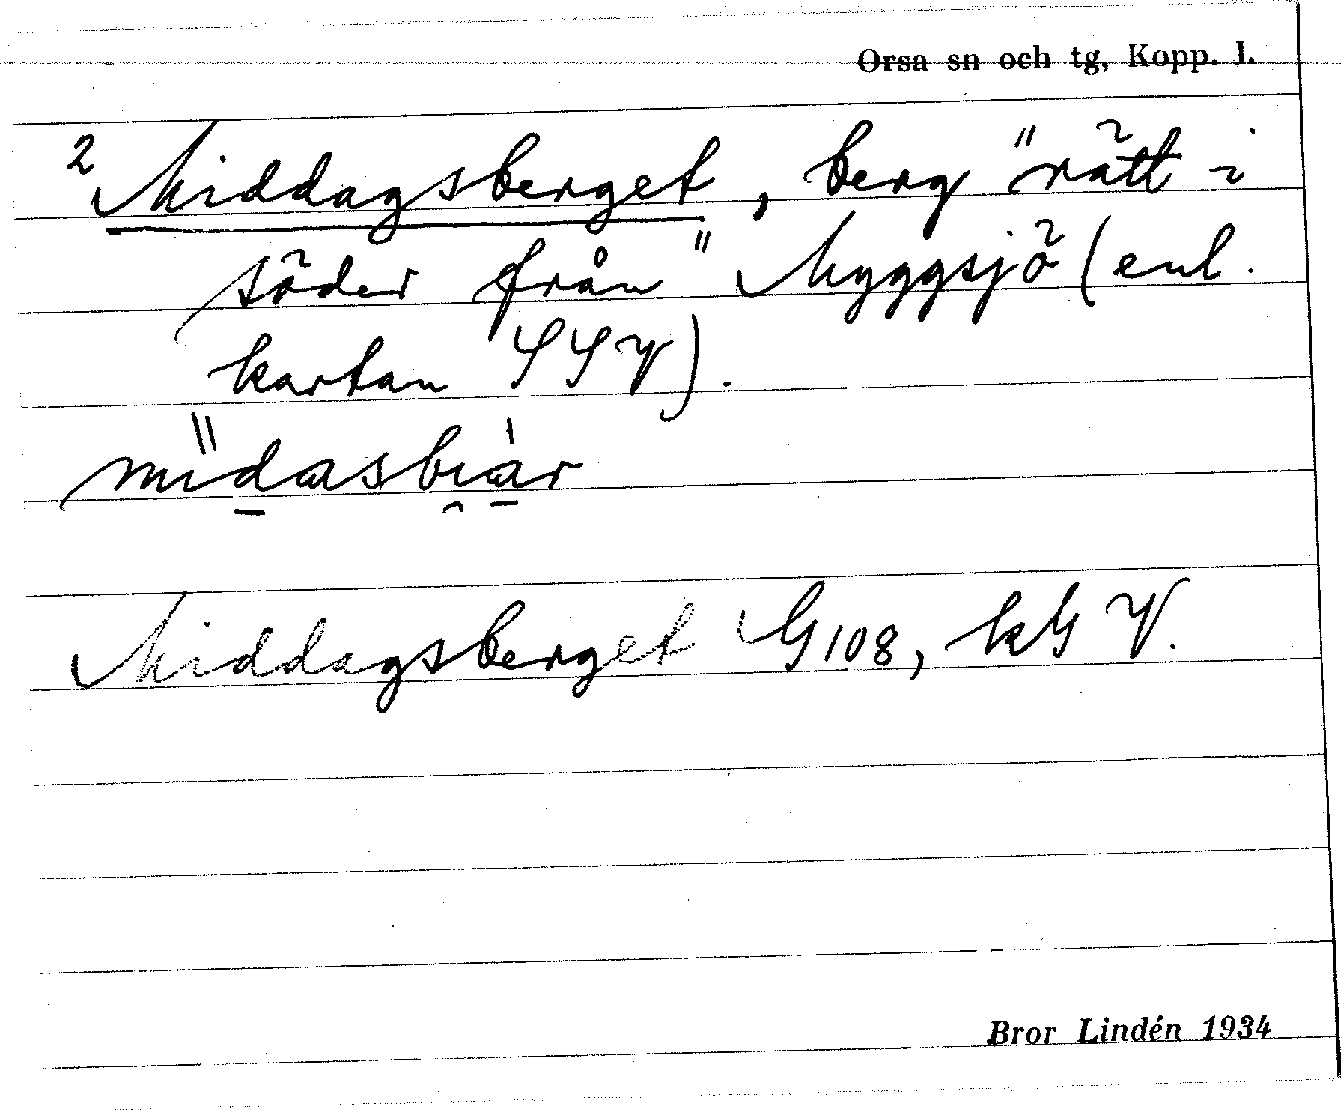 Orsa sn och tg, Kopp. l.
2 Middagsberget, berg "rätt i
söder från" Myggsjö (enl.
kartan SSV).
mi̎da̠sbi̯a̠r
Middagsberget G108, kG V.
Bror Lindén 1934